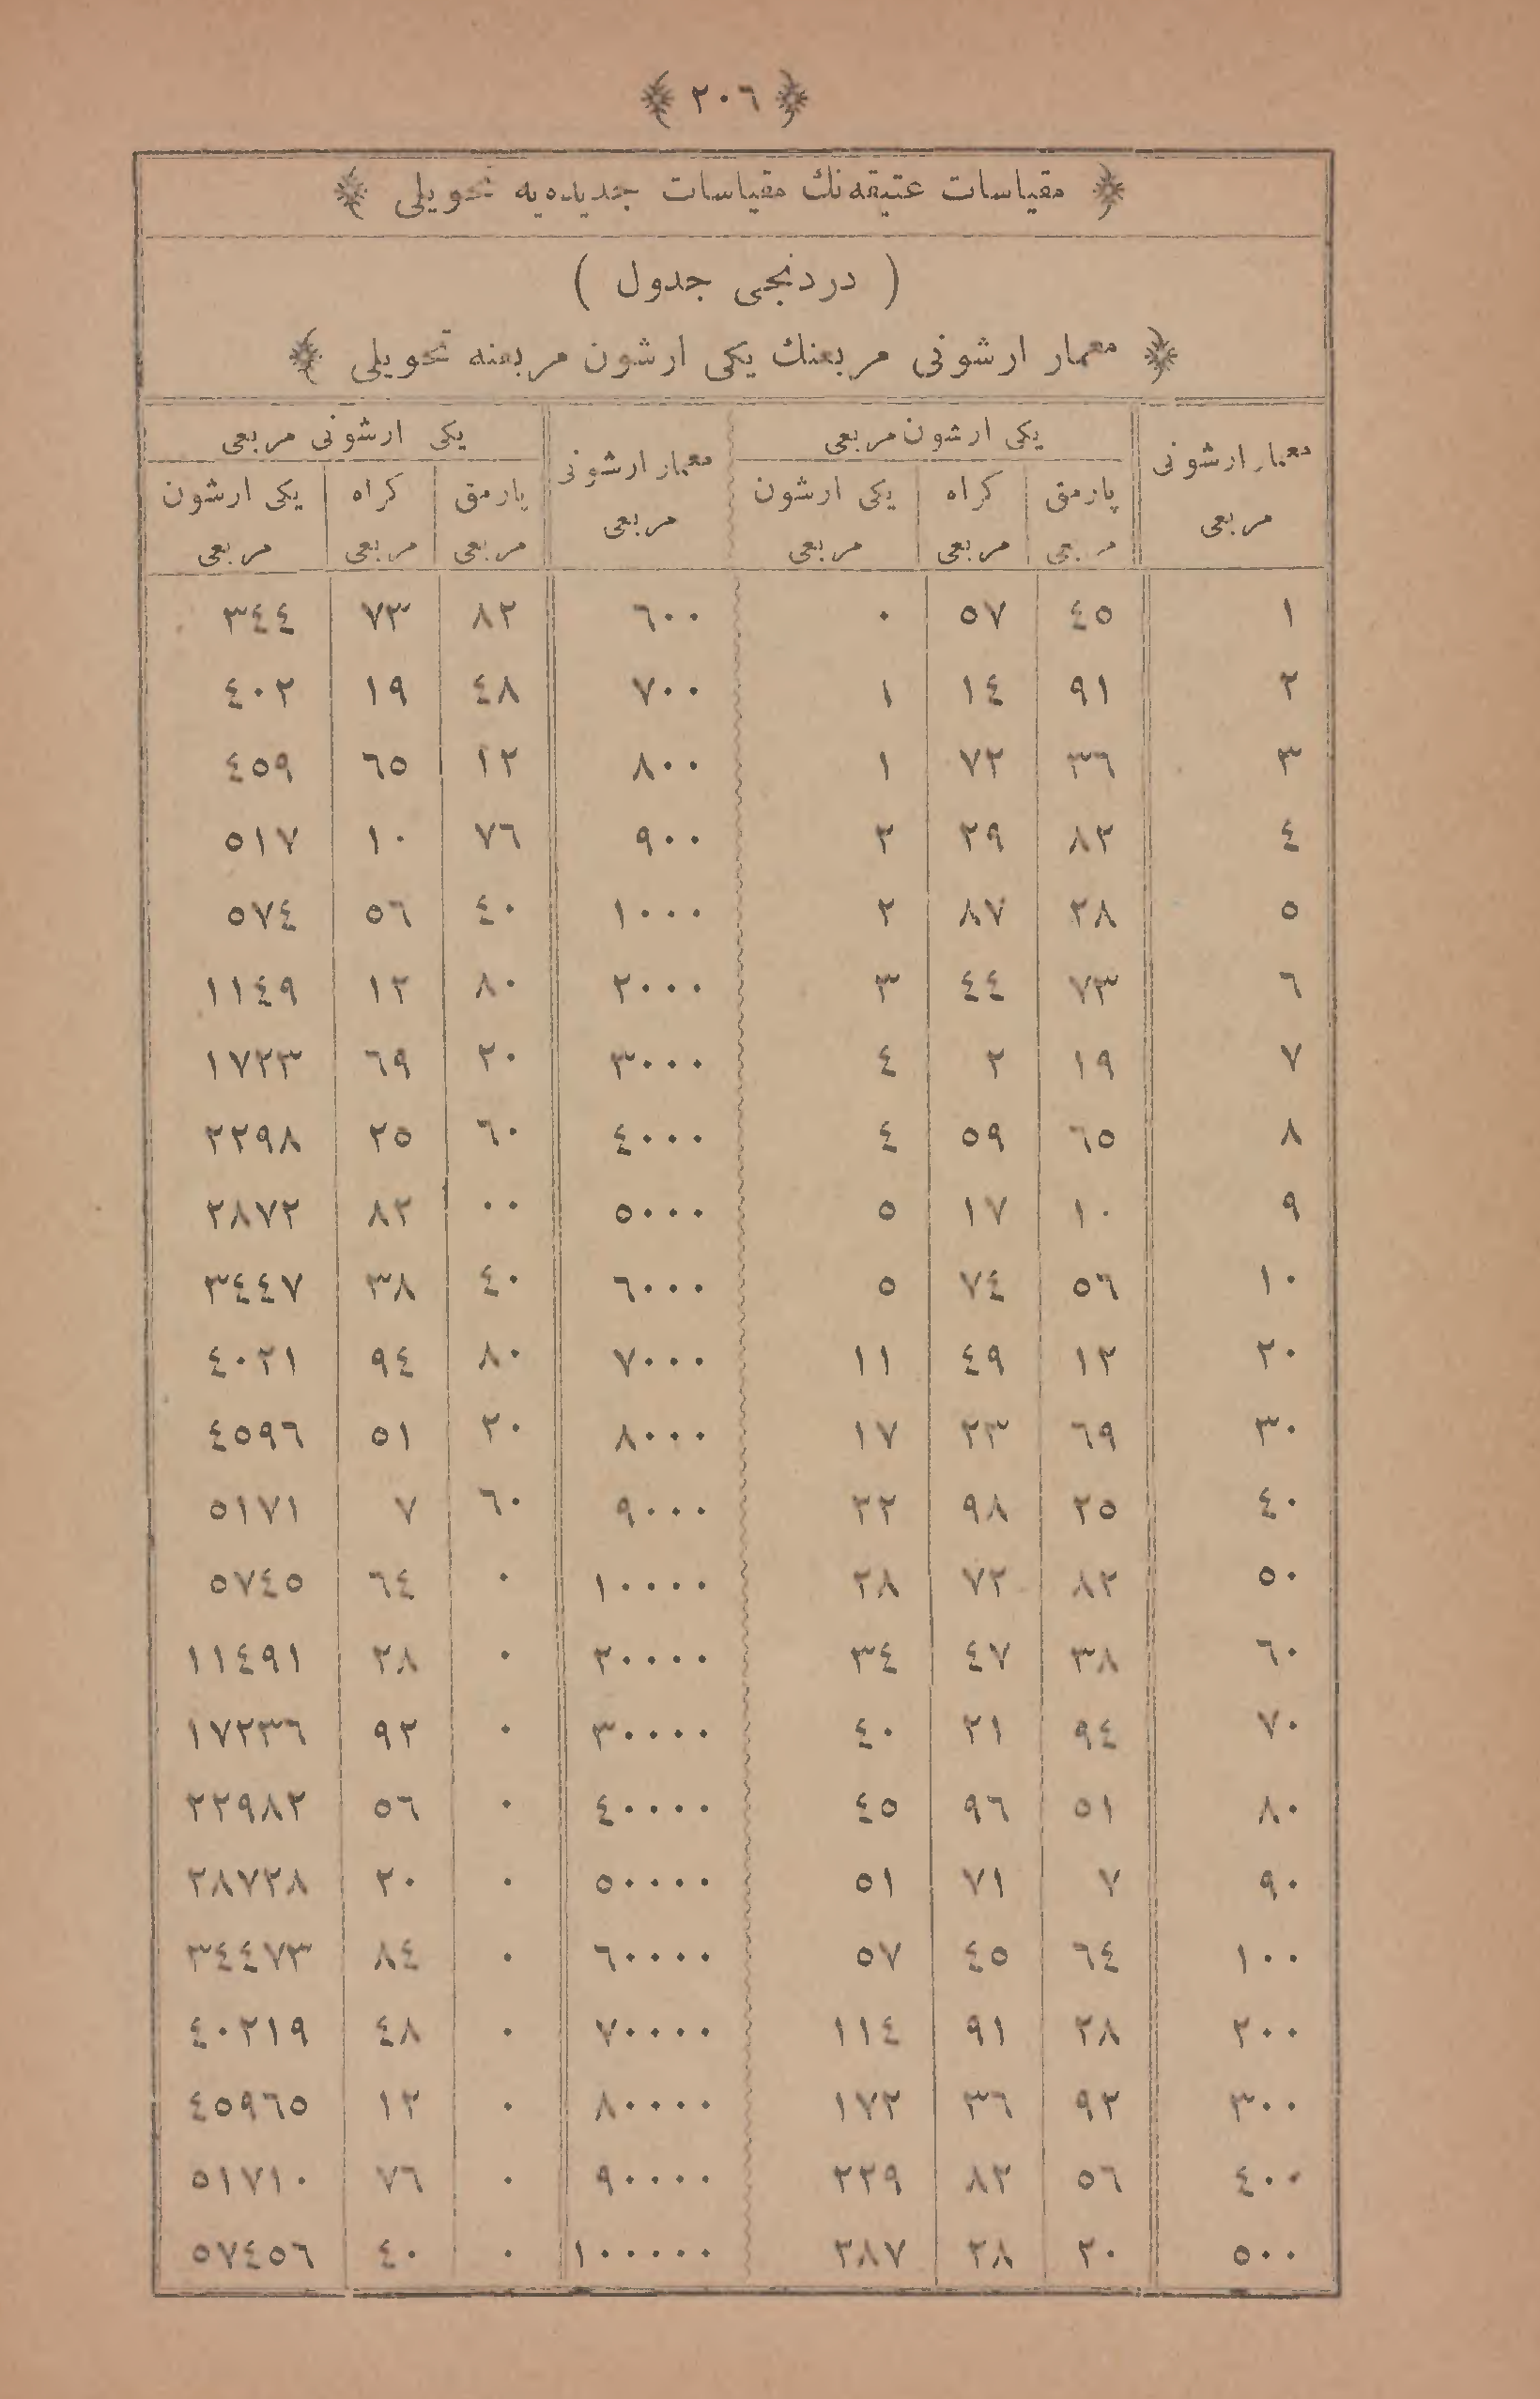 ﴿ ٢٠٦ ﴾
﴿ مقياسات عتيقه‌نك مقياسات جديده‌يه تحويلى ﴾
( دردنجى جدول )
﴿ معمار ارشونى مربعنك يكى ارشون مربعنه تحويلى ﴾
معمار ارشونى مربعى | يكى ارشون مربعى | معمار ارشونى مربعى | يكى ارشونى مربعى
پارمق مربعى | كراه مربعى | يكى ارشون مربعى | پارمق مربعى | كراه مربعى | يكى ارشون مربعى
١ | ٤٥ | ٥٧ | ٠ | ٦٠٠ | ٨٢ | ٧٣ | ٣٤٤
٢ | ٩١ | ١٤ | ١ | ٧٠٠ | ٤٨ | ١٩ | ٤٠٢
٣ | ٣٦ | ٧٢ | ١ | ٨٠٠ | ١٢ | ٦٥ | ٤٥٩
٤ | ٨٢ | ٢٩ | ٢ | ٩٠٠ | ٧٦ | ١٠ | ٥١٧
٥ | ٢٨ | ٨٧ | ٢ | ١٠٠٠ | ٤٠ | ٥٦ | ٥٧٤
٦ | ٧٣ | ٤٤ | ٣ | ٢٠٠٠ | ٨٠ | ١٢ | ١١٤٩
٧ | ١٩ | ٢ | ٤ | ٣٠٠٠ | ٢٠ | ٦٩ | ١٧٢٣
٨ | ٦٥ | ٥٩ | ٤ | ٤٠٠٠ | ٦٠ | ٢٥ | ٢٢٩٨
٩ | ١٠ | ١٧ | ٥ | ٥٠٠٠ | ٠٠ | ٨٢ | ٢٨٧٢
١٠ | ٥٦ | ٧٤ | ٥ | ٦٠٠٠ | ٤٠ | ٣٨ | ٣٤٤٧
٢٠ | ١٢ | ٤٩ | ١١ | ٧٠٠٠ | ٨٠ | ٩٤ | ٤٠٢١
٣٠ | ٦٩ | ٢٣ | ١٧ | ٨٠٠٠ | ٢٠ | ٥١ | ٤٥٩٦
٤٠ | ٢٥ | ٩٨ | ٢٢ | ٩٠٠٠ | ٦٠ | ٧ | ٥١٧١
٥٠ | ٨٢ | ٧٢ | ٢٨ | ١٠٠٠٠ | ٠ | ٦٤ | ٥٧٤٥
٦٠ | ٣٨ | ٤٧ | ٣٤ | ٢٠٠٠٠ | ٠ | ٢٨ | ١١٤٩١
٧٠ | ٩٤ | ٢١ | ٤٠ | ٣٠٠٠٠ | ٠ | ٩٢ | ١٧٢٣٦
٨٠ | ٥١ | ٩٦ | ٤٥ | ٤٠٠٠٠ | ٠ | ٥٦ | ٢٢٩٨٢
٩٠ | ٧ | ٧١ | ٥١ | ٥٠٠٠٠ | ٠ | ٢٠ | ٢٨٧٢٨
١٠٠ | ٦٤ | ٤٥ | ٥٧ | ٦٠٠٠٠ | ٠ | ٨٤ | ٣٤٤٧٣
٢٠٠ | ٢٨ | ٩١ | ١١٤ | ٧٠٠٠٠ | ٠ | ٤٨ | ٤٠٢١٩
٣٠٠ | ٩٢ | ٣٦ | ١٧٢ | ٨٠٠٠٠ | ٠ | ١٢ | ٤٥٩٦٥
٤٠٠ | ٥٦ | ٨٢ | ٢٢٩ | ٩٠٠٠٠ | ٠ | ٧٦ | ٥١٧١٠
٥٠٠ | ٢٠ | ٢٨ | ٢٨٧ | ١٠٠٠٠٠ | ٠ | ٤٠ | ٥٧٤٥٦